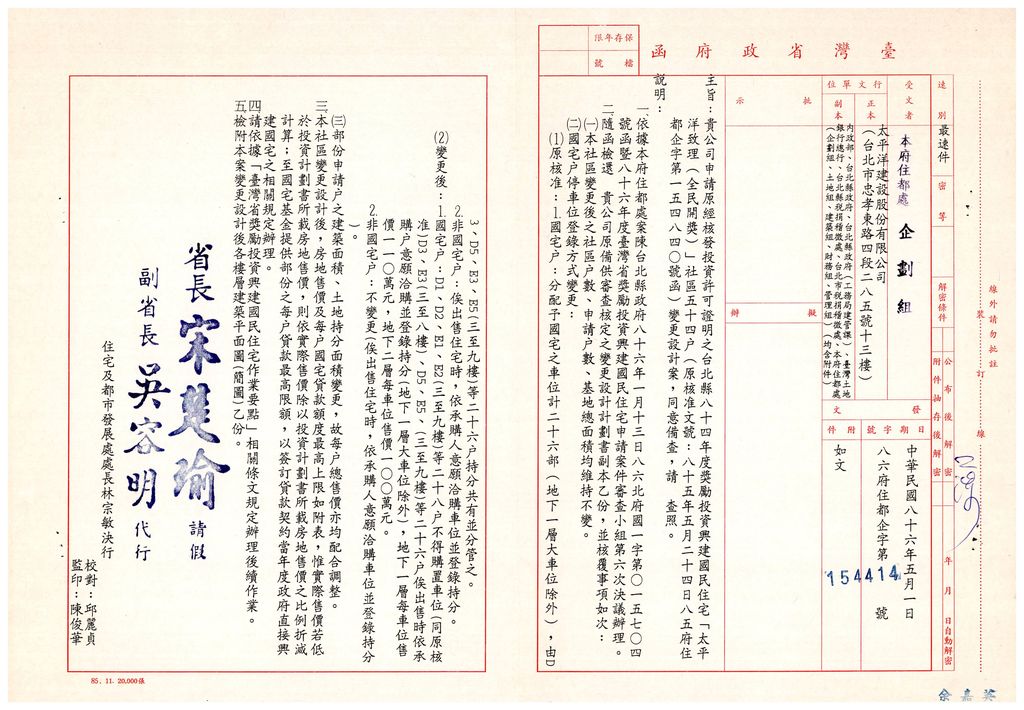 臺灣省政府函
保存年限
檔號
速別
最速件
密等
解密條件
公布後解密
附件抽存後解密
年月日自動解密
受文者
本府住都處 企劃組
行文單位
正本
太平洋建設股份有限公司
(台北市忠孝東路四段二八五號十三樓)
副本
內政部、台北縣政府、台北縣政府(工務局建管課)、臺灣土地
銀行總行、台北縣稅捐稽徵處、台北市稅捐稽徵處、本府住都處
(企劃組、土地組、建築組、財務組、管理組)(均附件)
發文
日期
中華民國八十六年五月一日
字號
八六府住都企字第 154414 號
附件
如文
批示
擬辦
主旨:貴公司申請原經核發投資許可證明之台北縣八十四年度獎勵投資興建國民住宅「太平
洋致理(全民開獎)」社區五十四戶(原核准文號:八十五年五月二十四日八五府住
都企字第一五四八四〇號函)變更設計案,同意備查,請 查照。
說明:
一、依據本府住都處案陳台北縣政府八十六年一月十三日八六北府國一字第〇一一五七〇四
號函暨八十六年度臺灣省獎勵投資興建國民住宅申請案件審查小組第六次決議辦理。
二、隨函檢還 貴公司原備供審查核定之變更設計計劃書副本乙份,並核覆事項如次:
(一)本社區變更後之社區戶數、申請戶數、基地總面積均維持不變。
(二)國宅戶停車位登錄方式變更:
(1)原核准:1.國宅戶:分配予國宅之車位計二十六部(地下一層大車位除外),由D
3、D5、E3、E5(三至九樓)等二十六戶持分共有並分管之。
2.非國宅戶:俟出售住宅時,依承購人意願洽購車位並登錄持分。
(2)變更後:1.國宅戶:D1、D2、E1、E2(三至九樓)等二十八戶不得購置車位(同原核
准)D3、E3(三至八樓)、D5、E5、(三至九樓)等二十六戶俟出售時依承
購戶意願洽購並登錄持分(地下一層大車位除外),地下一層每車位售
價一一〇萬元,地下二層每車位售價一〇〇萬元。
2.非國宅戶:不變更(俟出售住宅時,依承購人意願洽購車位並登錄持分
)。
(三)部份申請戶之建築面積、土地持分面積變更,故每戶總售價亦均配合調整。
三、本社區變更設計後,房地售價及每戶國宅貸款額度最高上限如附表,惟實際售價若低
於投資計劃書所載房地售價,則依實際售價除以投資計劃書所載房地售價之比例折減
計算;至國宅基金提供部份之每戶貸款最高限額,以簽訂貸款契約當年度政府直接興
建國宅之相關規定辦理。
四、請依據「臺灣省獎勵投資興建國民住宅作業要點」相關條文規定辦理後續作業。
五、檢附本案變更設計後各樓層建築平面圖(簡圖)乙份。
省長 宋楚瑜 請假
副省長 吳容明 代行
住宅及都市發展處處長林宗敏決行
校對:邱麗貞
監印:陳俊華
裝訂線
線外請勿批註
85.11.20,000張
余嘉英